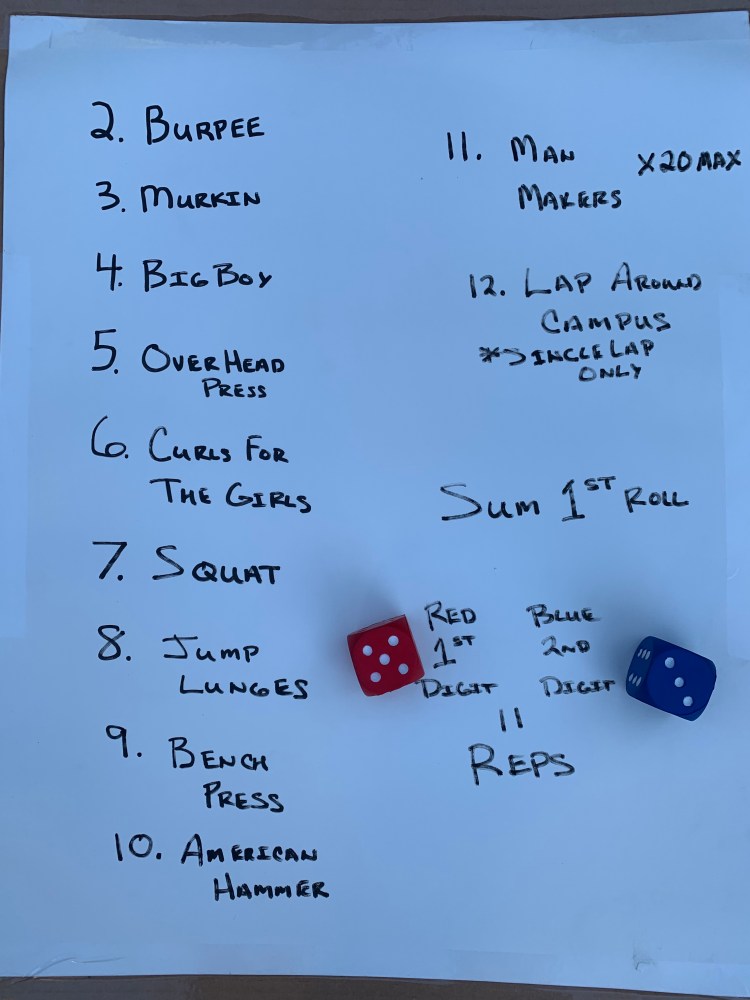 2. BURPEE
3. MURKIN
4. BIG BOY
5. OVERHEAD
PRESS
6. CURLS FOR
THE GIRLS
7. SQUAT
8. JUMP
LUNGES
9. BENCH
PRESS
10. AMERICAN
HAMMER
11. MAN X20 MAX
MAKERS
12. LAP AROUND
CAMPUS
*SINGLE LAP
ONLY
SUM 1ST ROLL
RED BLUE
1ST 2ND
DIGIT DIGIT
=
REPS